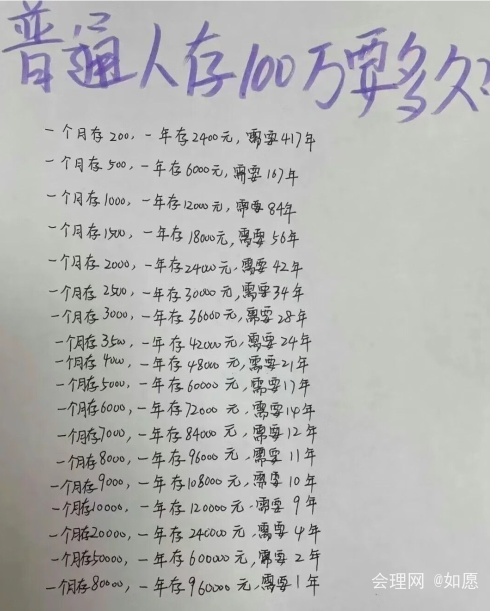 普通人存100万要多久?
一个月存200,一年存2400元,需要417年
一个月存500,一年存6000元,需要167年
一个月存1000,一年存12000元,需要84年
一个月存1500,一年存18000元,需要56年
一个月存2000,一年存24000元,需要42年
一个月存2500,一年存30000元,需要34年
一个月存3000,一年存36000元,需要28年
一个月存3500,一年存42000元,需要24年
一个月存4000,一年存48000元,需要21年
一个月存5000,一年存60000元,需要17年
一个月存6000,一年存72000元,需要14年
一个月存7000,一年存84000元,需要12年
一个月存8000,一年存96000元,需要11年
一个月存9000,一年存108000元,需要10年
一个月存10000,一年存120000元,需要9年
一个月存20000,一年存240000元,需要4年
一个月存50000,一年存600000元,需要2年
一个月存80000,一年存960000元,需要1年
会理网 @如愿